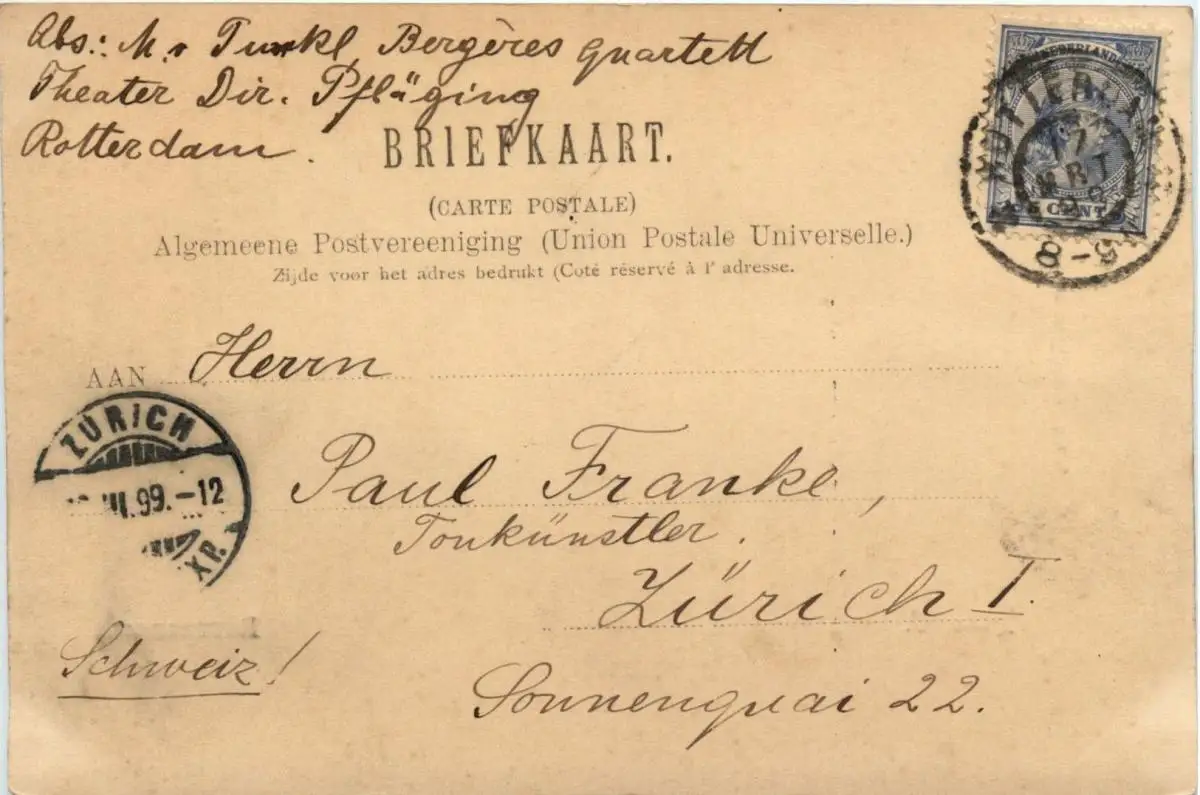 Abs: M. v Tunkl Bergères Quartett
Theater Dir. Pfläging
Rotterdam.
BRIEFKAART.
(CARTE POSTALE)
Algemeene Postvereeniging (Union Postale Universelle.)
Zijde voor het adres bedrukt (Coté réservé à l' adresse.
NEDERLAND
CENT
ROTTERDAM
17
MRT
8-9
AAN Herrn
ZÜRICH
III.99.-12
EXP.
Paul Franke,
Tonkünstler.
Zürich I.
Schweiz!
Sonnenquai 22.